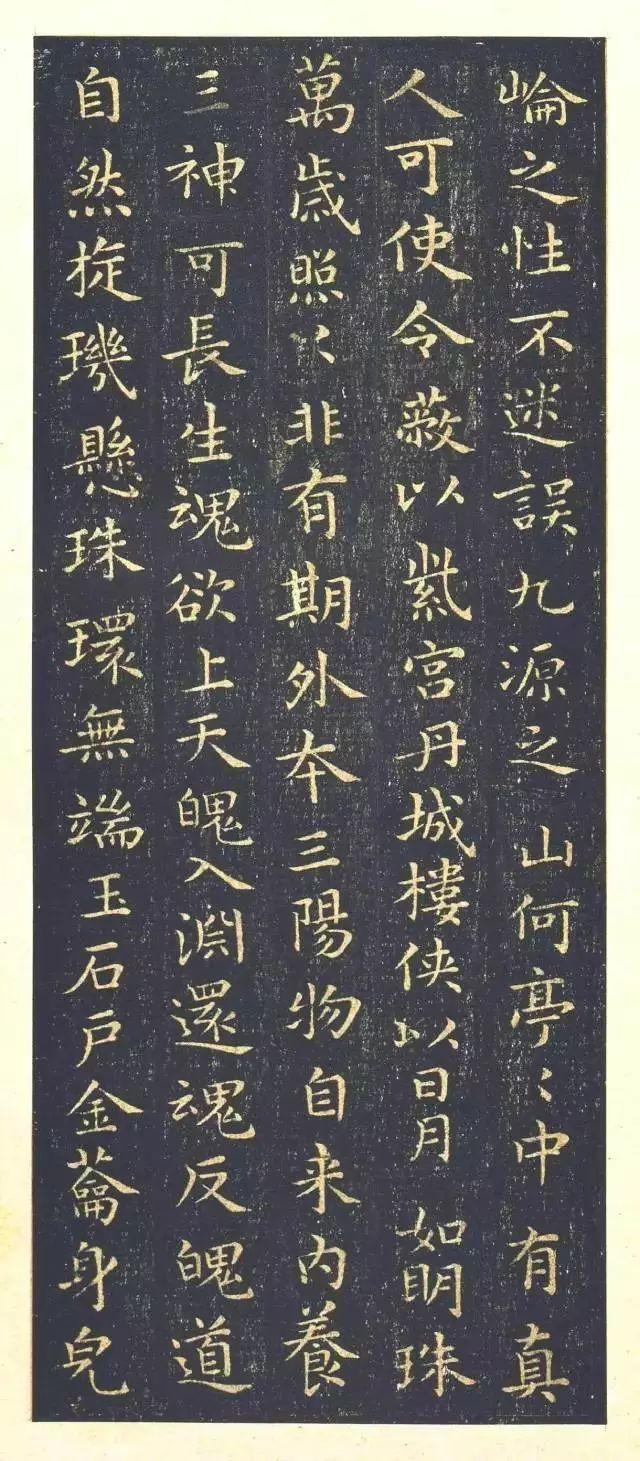 崘之性不迷誤九源之山何亭〻中有真
人可使令蔽以紫宮丹城樓俠以日月如明珠
萬歲照〻非有期外本三陽物自来內養
三神可長生魂欲上天魄入淵還魂反魄道
自然㫌璣懸珠環無端玉石戶金蘥身皃